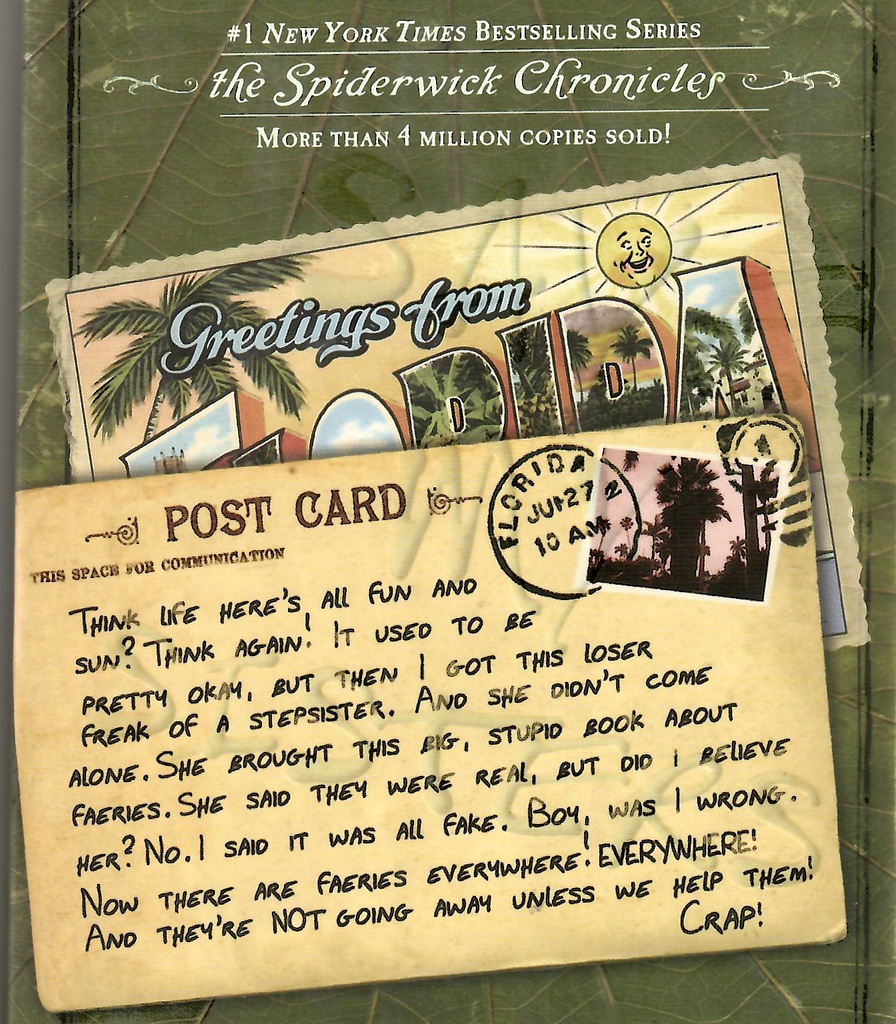 #1 New York Times Bestselling Series
the Spiderwick Chronicles
More than 4 million copies sold!
Greetings from
FLORIDA
POST CARD
THIS SPACE FOR COMMUNICATION
FLORIDA
JUN 27 2
10 AM
THINK LIFE HERE'S ALL FUN AND
SUN? THINK AGAIN! IT USED TO BE
PRETTY OKAY, BUT THEN I GOT THIS LOSER
FREAK OF A STEPSISTER. AND SHE DIDN'T COME
ALONE. SHE BROUGHT THIS BIG, STUPID BOOK ABOUT
FAERIES. SHE SAID THEY WERE REAL, BUT DID I BELIEVE
HER? NO. I SAID IT WAS ALL FAKE. BOY, WAS I WRONG.
NOW THERE ARE FAERIES EVERYWHERE! EVERYWHERE!
AND THEY'RE NOT GOING AWAY UNLESS WE HELP THEM!
CRAP!